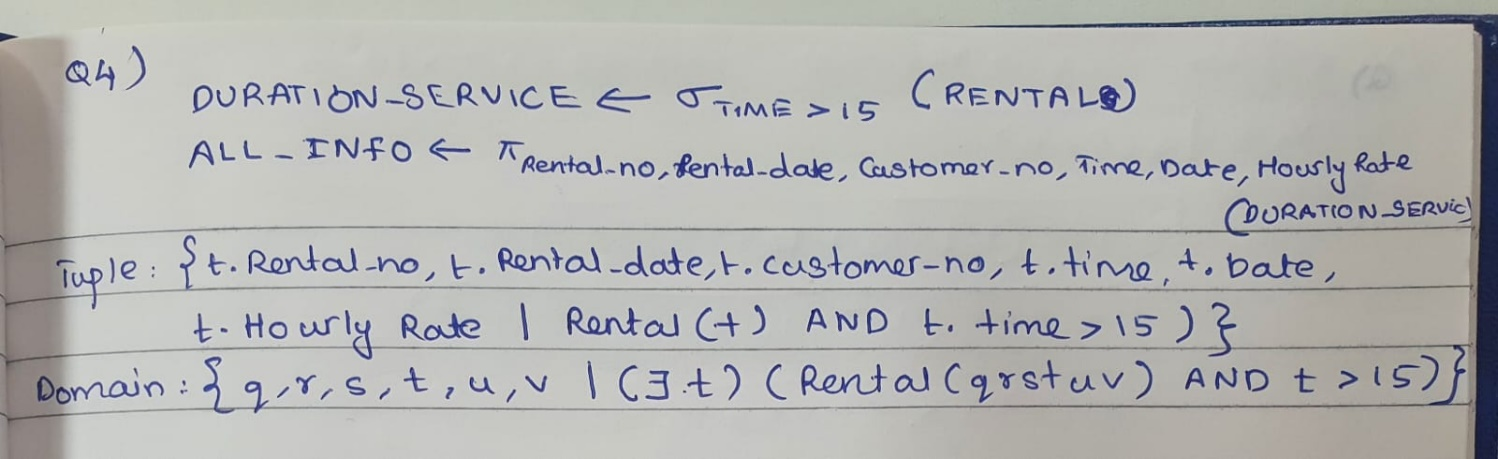 Q4)
DURATION-SERVICE ← σ TIME > 15 (RENTAL)
ALL_INFO ← π Rental-no, Rental-date, Customer-no, Time, Date, Hourly Rate
(DURATION_SERVIC)
Tuple: {t. Rental-no, t. Rental-date, t. customer-no, t. time, t. Date,
t. Hourly Rate | Rental (t) AND t. time > 15 ) }
Domain: { q, r, s, t, u, v | (∃.t) (Rental (qrstuv) AND t > 15) }